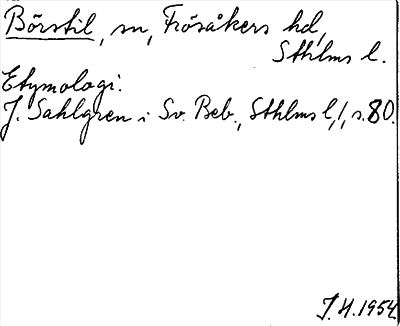 Börstil, sn, Frösåkers hd,
Sthlms l.
Etymologi.
J. Sahlgren i Sv. Beb., Sthlms l, 1, s. 80.
J.H. 1954